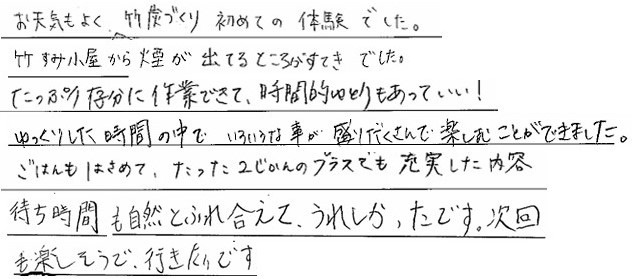 お天気もよく、竹炭づくり 初めての 体験 でした。
竹すみ小屋から煙が 出てるところがすてき でした。
たっぷり存分に作業できて、時間的ゆとりもあっていい!
ゆっくりした時間の中で いろいろな事が 盛りだくさんで楽しむことができました。
ごはんもはさめて、たった2じかんのプラスでも 充実した内容
待ち時間も自然とふれ合えて、うれしかったです。次回
も楽しそうで、行きたいです